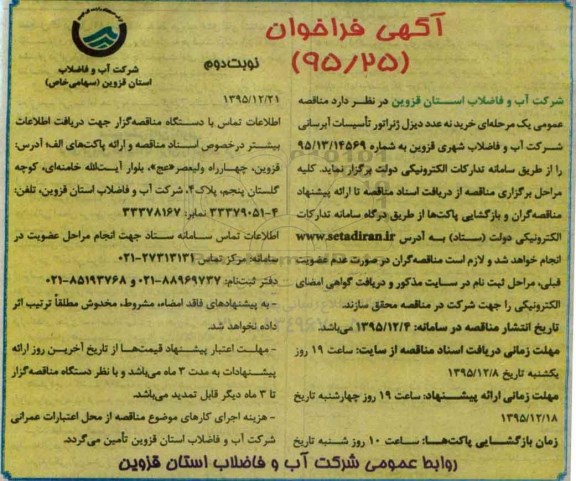 آگهی فراخوان
(۹۵/۲۵)
نوبت دوم
شرکت آب و فاضلاب
استان قزوین (سهامی خاص)
شرکت آب و فاضلاب استان قزوین در نظر دارد مناقصه
عمومی یک مرحله‌ای خرید نه عدد دیزل ژنراتور تأسیسات آبرسانی
شرکت آب و فاضلاب شهری قزوین به شماره ۹۵/۱۳/۱۴۵۶۹
را از طریق سامانه تدارکات الکترونیکی دولت برگزار نماید. کلیه
مراحل برگزاری مناقصه از دریافت اسناد مناقصه تا ارائه پیشنهاد
مناقصه‌گران و بازگشایی پاکت‌ها از طریق درگاه سامانه تدارکات
الکترونیکی دولت (ستاد) به آدرس www.setadiran.ir
انجام خواهد شد و لازم است مناقصه‌گران در صورت عدم عضویت
قبلی، مراحل ثبت نام در سایت مذکور و دریافت گواهی امضای
الکترونیکی را جهت شرکت در مناقصه محقق سازند.
تاریخ انتشار مناقصه در سامانه: ۱۳۹۵/۱۲/۴ می‌باشد.
مهلت زمانی دریافت اسناد مناقصه از سایت: ساعت ۱۹ روز
یکشنبه تاریخ ۱۳۹۵/۱۲/۸
مهلت زمانی ارائه پیشنهاد: ساعت ۱۹ روز چهارشنبه تاریخ
۱۳۹۵/۱۲/۱۸
زمان بازگشایی پاکت‌ها: ساعت ۱۰ روز شنبه تاریخ
۱۳۹۵/۱۲/۲۱
اطلاعات تماس با دستگاه مناقصه‌گزار جهت دریافت اطلاعات
بیشتر درخصوص اسناد مناقصه و ارائه پاکت‌های الف؛ آدرس:
قزوین، چهارراه ولیعصر «عج»، بلوار آیت‌الله خامنه‌ای، کوچه
گلستان پنجم، پلاک ۴، شرکت آب و فاضلاب استان قزوین، تلفن:
۳۳۳۷۹۰۵۱-۴ نمابر: ۳۳۳۷۸۱۶۷
اطلاعات تماس سامانه ستاد جهت انجام مراحل عضویت در
سامانه: مرکز تماس ۲۷۳۱۳۱۳۱-۰۲۱
دفتر ثبت‌نام: ۸۸۹۶۹۷۳۷-۰۲۱ و ۸۵۱۹۳۷۶۸-۰۲۱
- به پیشنهادهای فاقد امضاء، مشروط، مخدوش مطلقاً ترتیب اثر
داده نخواهد شد.
- مهلت اعتبار پیشنهاد قیمت‌ها از تاریخ آخرین روز ارائه
پیشنهادات به مدت ۳ ماه می‌باشد و با نظر دستگاه مناقصه‌گزار
تا ۳ ماه دیگر قابل تمدید می‌باشد.
- هزینه اجرای کارهای موضوع مناقصه از محل اعتبارات عمرانی
شرکت آب و فاضلاب استان قزوین تأمین می‌گردد.
روابط عمومی شرکت آب و فاضلاب استان قزوین